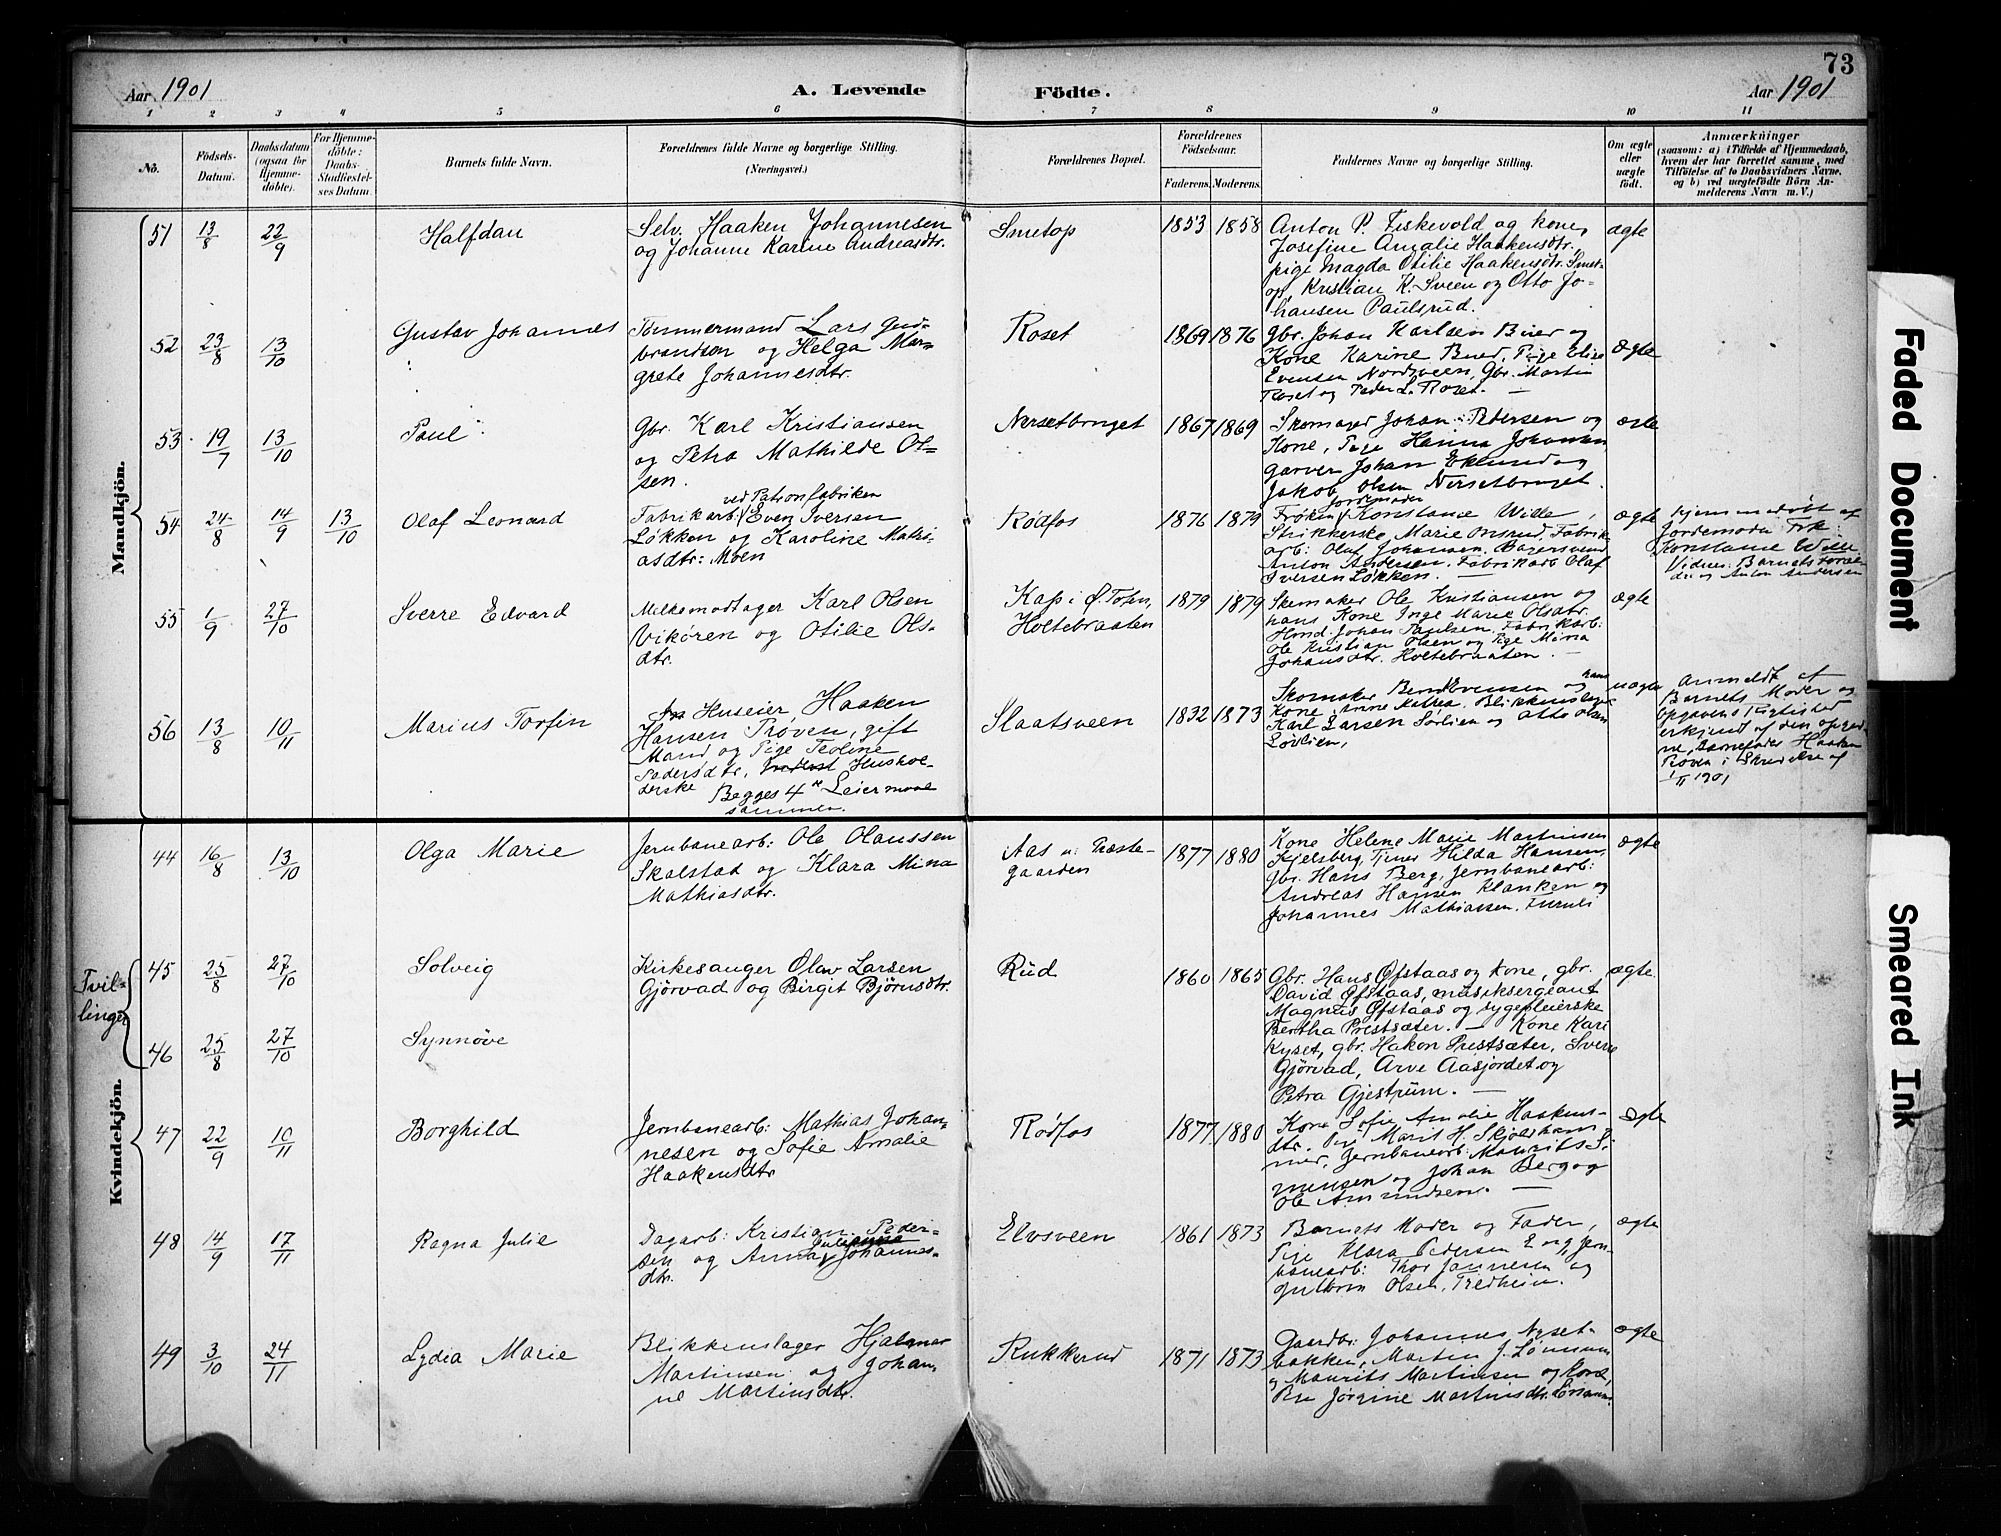 73
Aar 1901
A. Levende
Födte.
Aar 1901
1 2 3 4 5 6 7 8 9 10 11
No.
Födsels-Datum.
Daabsdatum (ogsaa for Hjemmedöbte).
For Hjemmedöbte: Daabs-Stadfæstelses Datum.
Barnets fulde Navn.
Forældrenes fulde Navne og borgerlige Stilling.
(Næringsvei.)
Forældrenes Bopæl.
Forældrenes Födselsaar.
Faderens. Moderens.
Faddernes Navne og borgerlige Stilling.
Om ægte eller uægte födt.
Anmærkninger
(saasom: a) i Tilfælde af Hjemmedaab,
hvem der har forrettet samme, med
Tilföielse af to Daabsvidners Navne,
og b) ved uægtefödte Börn An-
melderens Navn m. V.)
Mandkjön.
51 13/8 22/9 Halfdan
Selv. Haaken Johannesen
og Johanne Karine Andreasdtr.
Smetop 1853 1858
Anton P. Fiskevold og kone,
Josefine Amalie Haakensdtr.
pige Magda Otilie Haakensdtr. Smet-
op, Kristian K. Sveen og Otto Jo-
hansen Paulsrud.
ægte
52 23/8 13/10 Gustav Johannes
Tømmermand Lars Gud-
brandsen og Helga Mar-
grete Johannesdtr.
Roset 1869 1876
Gbr. Johan Karlsen Buer og
Kone Karine Bued, Pige Elise
Evensen Nordsveen, Gbr. Martin
Roset og Peder L. Roset. —
ægte
53 19/7 13/10 Paul
Gbr. Karl Kristiansen
og Petra Mathilde Ol-
sen.
Nersetbruget 1867 1869
Skomager Johan Pedersen og
Kone, Pige Hanna Johansen,
garver Johan Eklund og
Jakob Olsen Nersetbruget.
ægte
54 24/8 14/9 13/10 Olaf Leonard
ved Patronfabriken
Fabrikarb. Even Iversen
Løkken og Karoline Mathi-
asdtr. Moen
Rødfos 1876 1879
jordemoder
Frøken Konstanse Wille,
Strikkerske Marie Onsrud, Fabrik-
arb: Olaf Johansen, Bagersvend
Anton Andersen, Fabrikarb Olaf
Iversen Løkken. —
ægte
Hjemmedøbt af
Jordemoder Frk:
Konstanse Wille
Vidner: Barnets Foræl-
dre og Anton Andersen
55 1/9 27/10 Sverre Edvard
Melkemodtager Karl Olsen
Vikøren og Otilie Ols-
dtr.
Kap i Ø. Toten,
Holtebraaten
1879 1879
Skomaker Ole Kristiansen og
hans Kone Inge Marie Olsdtr.
Hmd. Johan Paulsen, Fabrikarb:
Ole Kristian Olsen og Pige Mina
Johansdtr. Holtebraaten. —
ægte
56 13/8 10/11 Marius Torfin
Huseier Haaken
Hansen Prøven, gift
Mand og Pige Teoline
Pedersdtr, Husholderske
Begges 4de Leiermaal
sammen.
Slaatsveen 1832 1873
Skomaker Bernt Evensen og hans
Kone Anne Katrea, Blikkenslager
Karl Larsen Sørlien og Otto Olsen
Løvlien,
uægte
Anmeldt af
Barnets Moder og
Opgavens Rigtighed
erkjend af den opgivne
Barnefader Haaken
Prøven i Skrivelse af
1/11 1901
Kvindekjön.
44 16/8 13/10 Olga Marie
Jernbanearb: Ole Olaussen
Skalstad og Klara Mina
Mathiasdtr.
Aas u. Præste-
gaarden
1877 1880
Kone Helene Marie Martinsen
Kjelsberg, Tjener Hilda Hansen,
gbr. Hans Berg, Jernbanearb:
Andreas Hansen Klanken og
Johannes Mathiassen, Furuli
ægte
Tvil-
linger
45 25/8 27/10 Solveig
Kirkesanger Olav Larsen
Gjörvad og Birgit Björnsdtr.
Rud 1860 1865
Gbr. Hans Øfstaas og Kone, gbr.
David Øfstaas, musiksergeant
Magnus Øfstaas og sygepleierske
Bertha Prestsæter. — Kone Kari
ægte
46 25/8 27/10 Synnöve
Kyset, gbr. Hakon Prestsæter, Sverre
Gjörvad, Arve Aasjordet og
Petra Gjestrum. —
47 22/9 10/11 Borghild
Jernbanearb: Mathias Johan-
nesen og Sofie Amalie
Haakensdtr
Rødfos 1877 1880
Kone Sofie Amalie Haakens-
dtr. Pige Marit H. Skjølsham-
mer, Jernbanearb: Maurits Si-
mensen og Johan Berg og
Ole Amundsen. —
ægte
48 14/9 17/11 Ragna Julie
Dagarb: Kristian Peder-
sen og Anna Julianna Johannes-
dtr.
Elvsveen 1861 1873
Barnets Moder og Fader,
Pige Klara Pedersen Eng, Jern-
banearb: Thor Jannesen og
Gulbrin Olsen, Fredheim.
ægte
49 3/10 24/11 Lydia Marie
Blikkenslager Hjalmar
Martinsen og Johan-
ne Martinsdtr.
Rukkerud 1871 1873
Gaardbr. Johannes Nyset-
bakken, Martin J. Lønnum
og Maurits Martinsen og Kone,
Jørgine Martinsdtr.
ægte
Faded Document
Smeared Ink